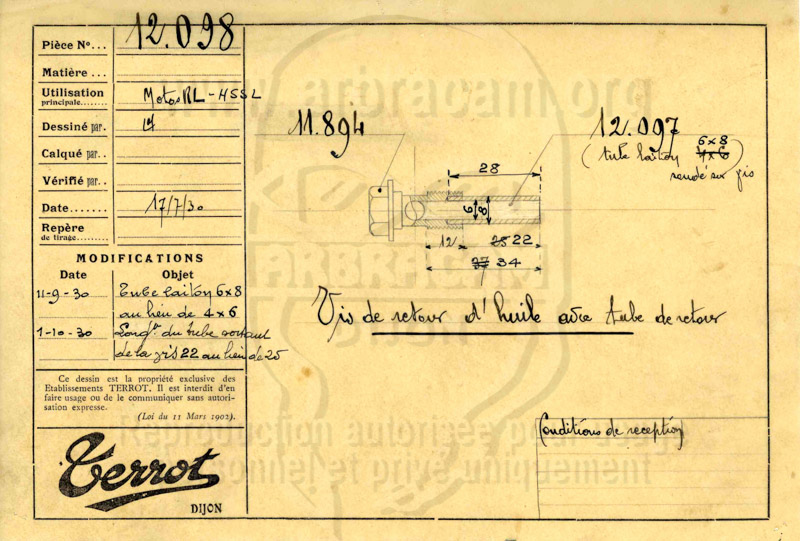 Pièce No... 12.098
Matière ...
Utilisation principale........ Motos RL - HSSL
Dessiné par.
Calqué par..
Vérifié par..
Date ....... 17/7/30
Repère de tirage.......
MODIFICATIONS
Date Objet
11-9-30 Tube laiton 6x8
au lieu de 4x6
1-10-30 Longr. du tube sortant
de la vis 22 au lieu de 25
Ce dessin est la propriété exclusive des
Etablissements TERROT. Il est interdit d'en
faire usage ou de le communiquer sans autori-
sation expresse.
(Loi du 11 Mars 1902).
Terrot
DIJON
www.arbracam.org
11.894
12.097
6x8
(tube laiton 4x6)
soudé sur vis
28
6 8
12 25 22
37 34
ARBRACAM
Dijon
Vis de retour d'huile avec tube de retour
Conditions de reception
Reproduction autorisée pour usage
personnel et privé uniquement